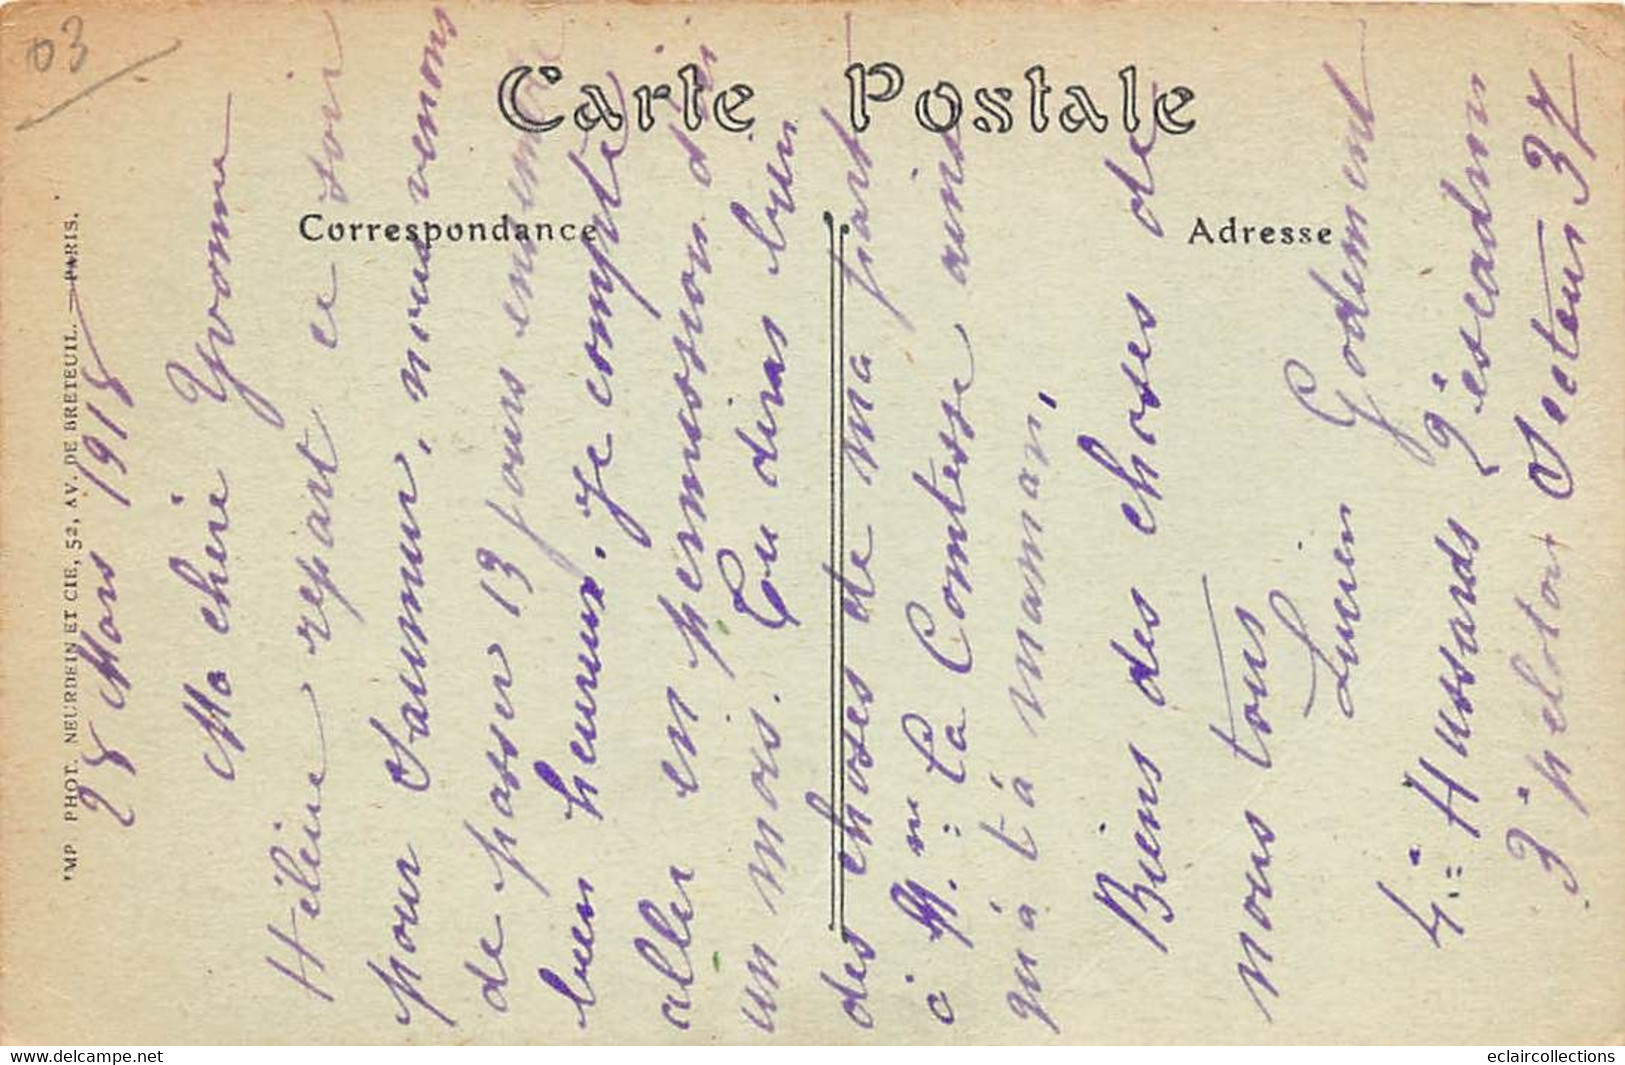 03
Carte Postale
Correspondance
Adresse
IMP. PHOT. NEURDEIN ET CIE, 52, AV. DE BRETEUIL. — PARIS.
28 Mars 1918
Ma chère Yvonne
Hélène repart ce soir
pour Saumur, nous venons
de passer 13 jours ensemble
bien heureux. Je compte
aller en permission d'ici
un mois. Tu diras bien
des choses de ma part
à Mme La Comtesse ainsi
qu'à ta maman,
Biens des choses de
nous tous
Lucien Godement
4e Hussards 2e escadron
3e peloton Secteur 37
eclaircollections
www.delcampe.net